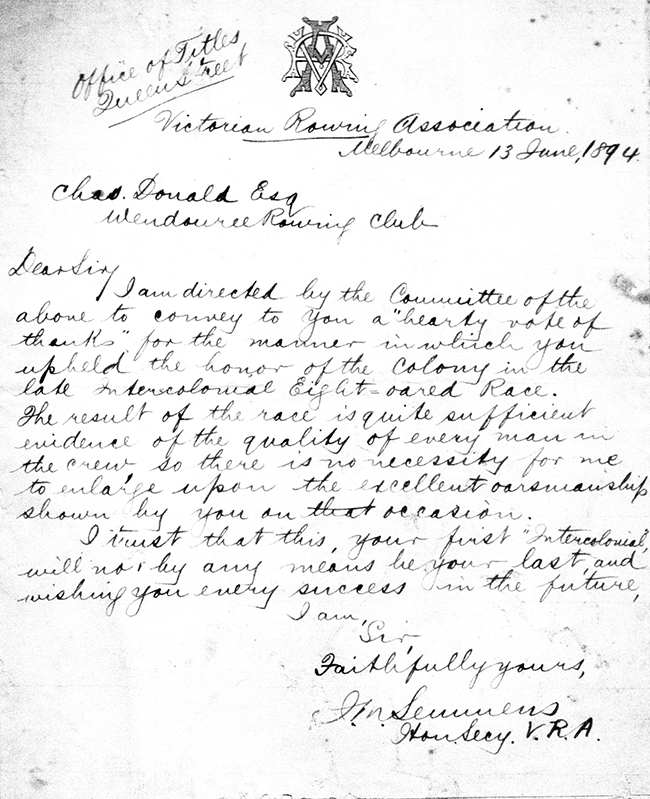 Office of Titles
Queen Street
Victorian Rowing Association.
Melbourne 13 June, 1894.
Chas. Donald Esq
Wendouree Rowing Club
Dear Sir,
I am directed by the Committee of the
above to convey to you a "hearty vote of
thanks" for the manner in which you
upheld the honor of the Colony in the
late Intercolonial Eight-oared Race.
The result of the race is quite sufficient
evidence of the quality of every man in
the crew, so there is no necessity for me
to enlarge upon the excellent oarsmanship
shown by you on that occasion.
I trust that this, your first "Intercolonial",
will not by any means be your last, and
wishing you every success in the future,
I am,
Sir,
Faithfully yours,
Semmens
Hon. Secy. V.R.A.